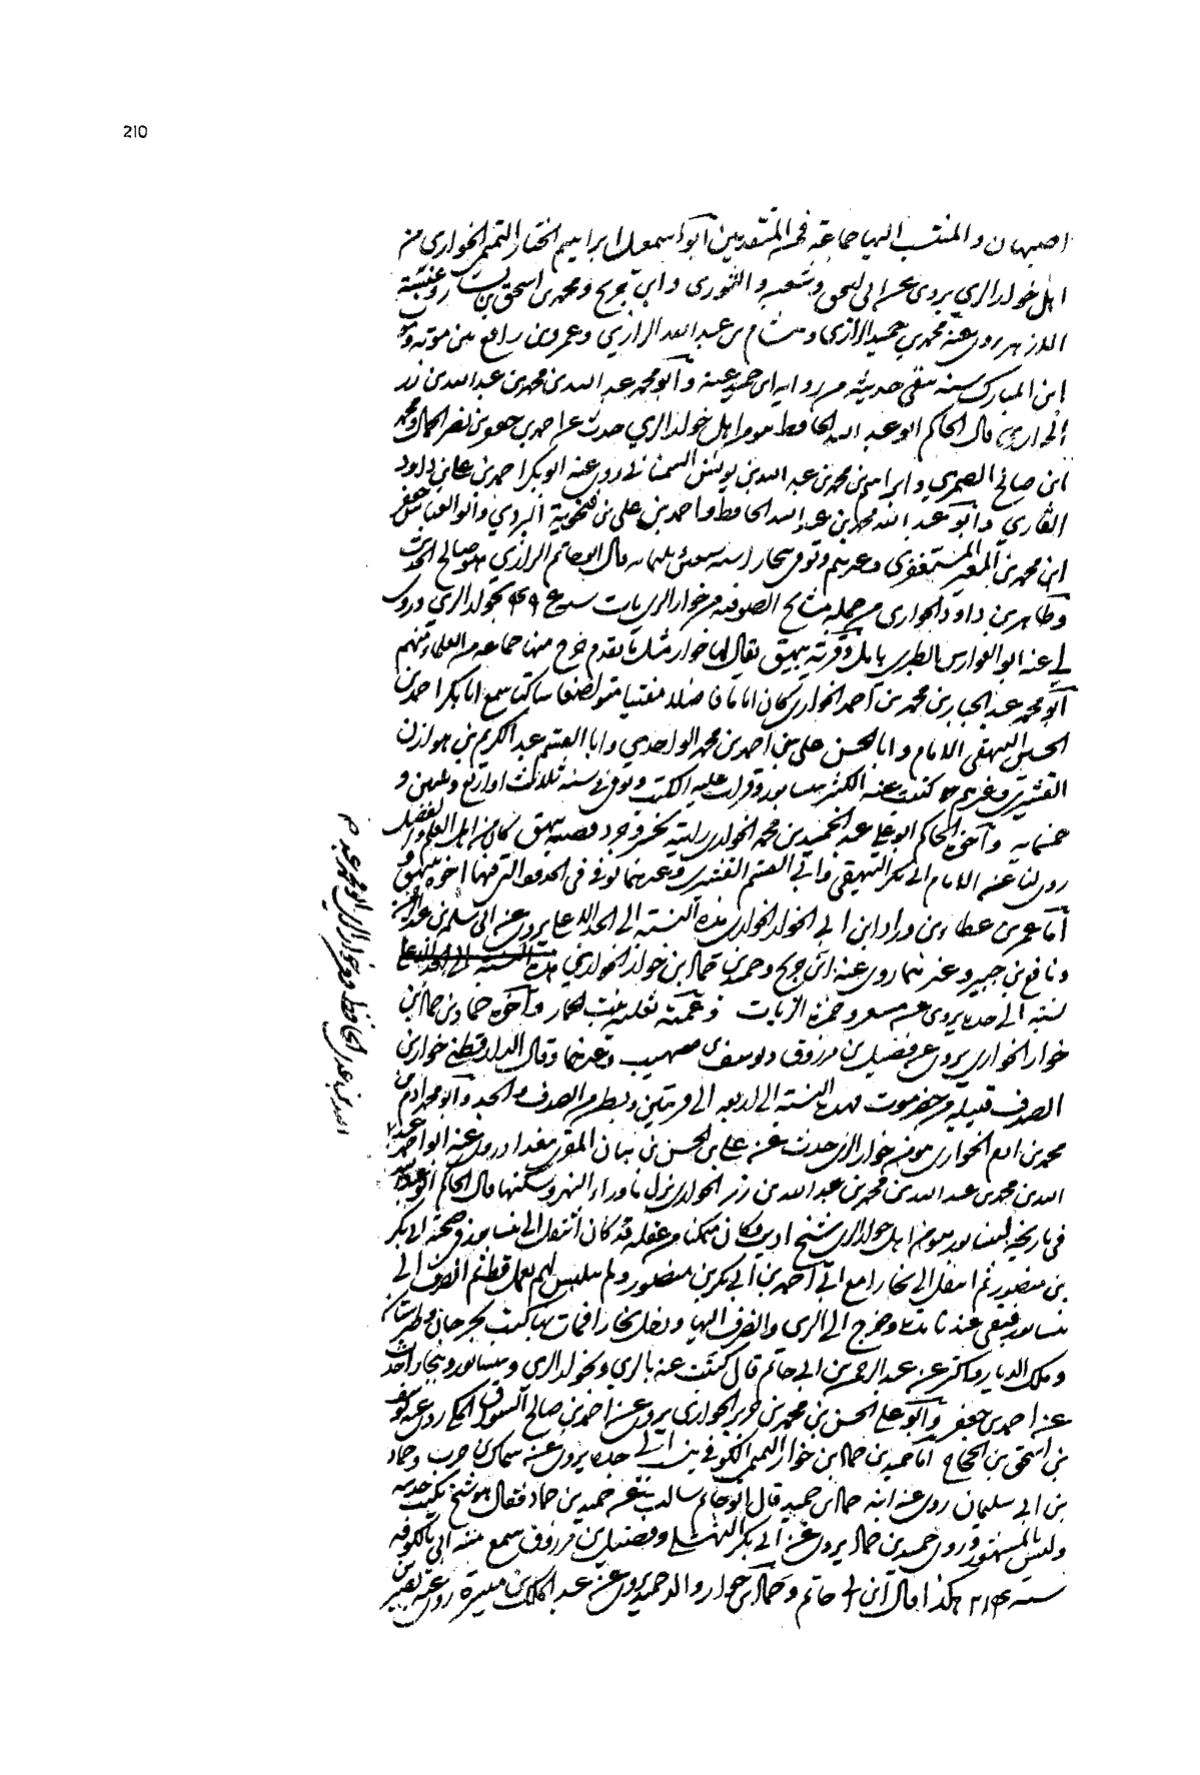 210
اصبهان والمنتسب اليها جماعة فى المتقدمين ابو اسمعيل ابراهيم المختار التميمى الخوارى من
اهل خوار الرى يروى عن ابى اسحق وشعبة والثورى وابن جريج ومحمد بن اسحق بن
روى عنه محمد بن حميد الرازى وهشام بن عبد الله الرازي وعمرو بن رافع
ابن المبارك سنة يتقى حديثه من رواية ابن حميد عنه وابو محمد عبد الله بن محمد بن عبد الله بن زر
الخوارى قال الحاكم ابو عبد الله الحافظ هو من اهل خوار الري حدث عن احمد بن جعفر بن نصر الجمال ومحمد
ابن صالح الصيمري وابراهيم بن محمد بن عبد الله بن يونس السمنانى روى عنه ابو بكر احمد بن على بن داود
القاري وابو عبد الله محمد بن عبد الله الحافظ واحمد بن على بن فنجوية اليزدي وابو العباس جعفر
ابن محمد بن المعتز المستغفرى وغيرهم وتوفى ببخارا سنة قال ابو حاتم الرازي هو صالح الحديث
وظاهر بن داود الخوارى من جملة مشايخ الصوفية من خوار الرى بات بخوار الرى وروى
لى عنه ابو الفوارس الطبرى بامل وقرية ببيهق يقال لها خوار مثل ما تقدم خرج منها جماعة من العلماء منهم
ابو محمد عبد الجبار بن محمد بن احمد الخوارى كان اماما فاضلا مفتيا متواضعا ساكنا سمع ابا بكر احمد بن
الحسين البيهقى الامام وابا الحسن على بن احمد بن محمد الواحدي وابا القسم عبد الكريم بن هوازن
القشيرى وغيرهم كتبت عنه الكثير بنيسابور وقرات عليه الكتب وتوفى سنة ثلاث او اربع وثلثين و
خمسماية واخوه الحاكم ابو على عبد الحميد بن محمد الخوارى قصبة بيهق كان من اهل العلم والفضل
روى لنا عن الامام ابى بكر البيهقى وابى القسم القشيرى وغيرهما توفى فى الحدود التى توفى فيها اخوه ببيهق و
اما عمر بن عطاء بن وراد ابن ابى الخوار الخوارى هذه النسبة الى الجد الاعلى يروى عن ابى سلمة بن عبد الرحمن
ونافع بن جبير وغيرهما روى عنه ابن جريج وحميد بن حماد بن خوار الخوارى
نسبة الى جده يروى عن مسعر وحمزة الزيات وعمته ثعلبة بنت الخوار واخوه حماد بن حماد بن
خوار الخوارى يروى عن فضيل بن مرزوق ويوسف بن صهيب وغيرهما وقال الدارقطنى خوار بن
الصدف قبيلة من حضرموت فهذه النسبة الى اربعة الى قريتين وبطن من الصدف والجد وابو محمد ادم بن
محمد بن ادم الخوارى هو من خوار الرى حدث عن على بن الحسن بن بيان المقرى ببغداد روى عنه ابو احمد
الله بن محمد بن عبد الله بن محمد بن عبد الله بن زر الخوارى نزيل ما وراء النهر وسكنها قال الحاكم ابو عبد الله
فى تاريخه لنيسابور هو من اهل خوار الرى شيخ اديب وكان متمكنا من عقله قد كان انتقل الى نيسابور فى صحبة ابى بكر
بن منصور ثم انتقل الى بخارا مع ابى احمد بن ابى بكر بن منصور ولم يتلبس لهم بعمل قط ثم انصرف الى
نيسابور فبقى عندنا مدة وخرج الى الرى وانصرف اليها ودخل بخارا فمات بها كتب بجرجان وطبرستان
وملك الديار واكثر عن عبد الرحمن بن ابى حاتم قال كتبت عنه بالري وبخوار الرى ونيسابور وبخارا حدث
عن احمد بن جعفر وابو على الحسن بن محمد بن الخوارى يروى عن احمد بن صالح السواق المكى روى عنه
بن اسحق بن الحجاج اما حميد بن حماد بن خوار التميمى الكوفى ينسب الى جده يروى عن سماك بن حرب وحماد
بن ابى سليمان روى عنه ابنه حماد بن حميد قال ابو حاتم سالت عن حميد بن حماد فقال هو شيخ يكتب حديثه
وليس بالمشهور وروى حميد بن حماد يروى عن ابى بكر النهشلى وفضيل بن مرزوق سمع منه ابى بالكوفة
سنة هكذا قال ابن ابى حاتم وحماد بن خوار والد حميد يروى عن عبد الملك بن ميسرة روى عنه نصير بن
الحافظ من خوار الرى ابو محمد عبد
الله بن عبد الله